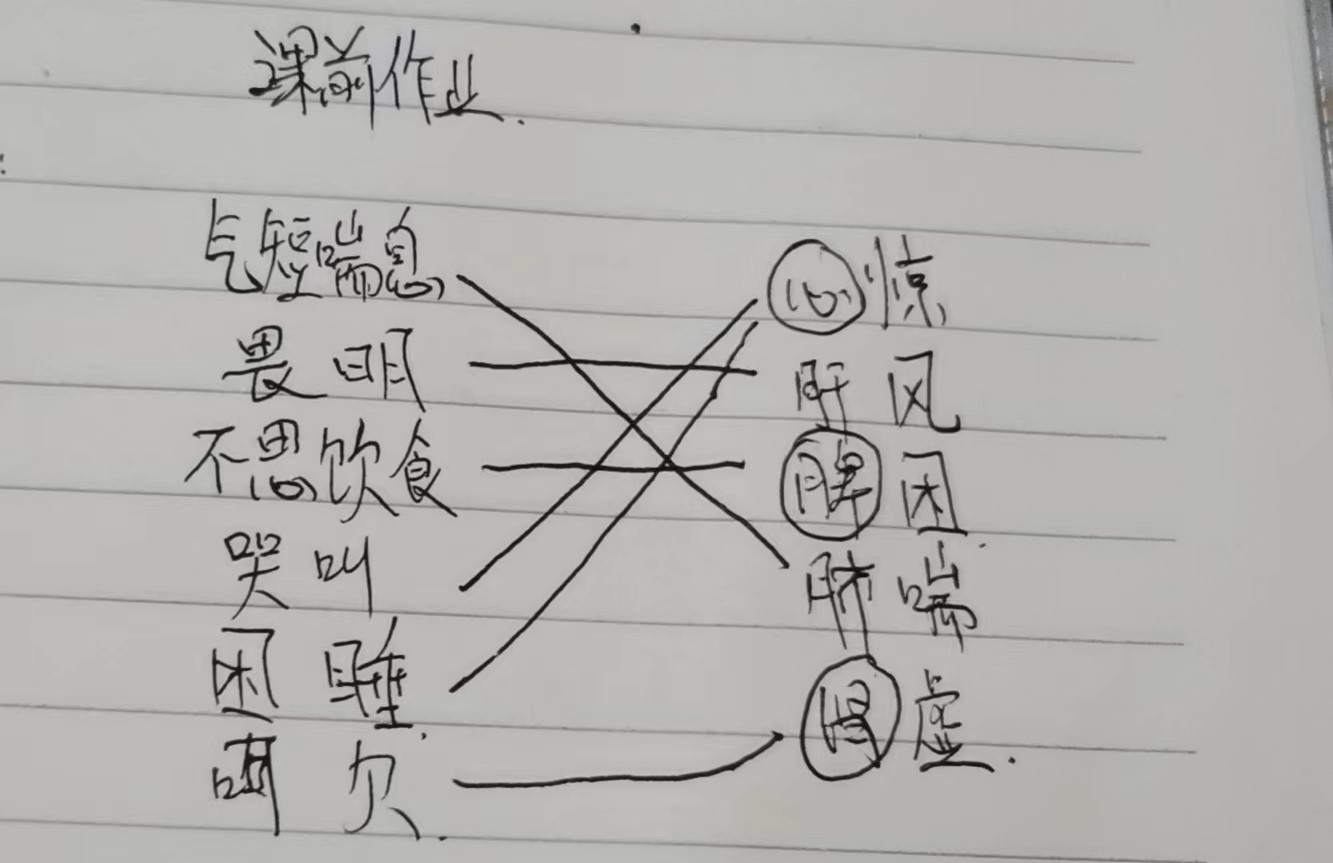 课前作业.
气短喘息
畏明
不思饮食
哭叫
困睡.
呵欠.
心惊
肝风
脾困.
肺喘
肾虚.